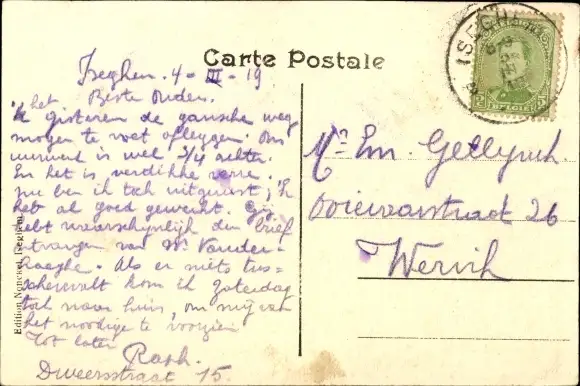 Carte Postale
ISEGHEM
BELGIË 5
Iseghem. 4 - III - 19
Beste Ouders.
'k het gisteren de gansche weg
mogen te voet afleggen. Ons
uurwerk is wel 3/4 achter.
En het is verdikke verre.
nu ben ik toch uitgerust; 'k
heb al goed gewerkt. Gij
hebt waarschynlyk den brief
ontvangen van Mr Vander-
haeghe. Als er niets tus=
schenvalt kom ik zaterdag
toch naar huis, om mij van
het noodige te voorzien
Tot later
Raph.
Dweersstraat 15.
Mr Em. Gellynck
Ooievaarstraat 26
Wervik
Edition Nonckel, Iseghem